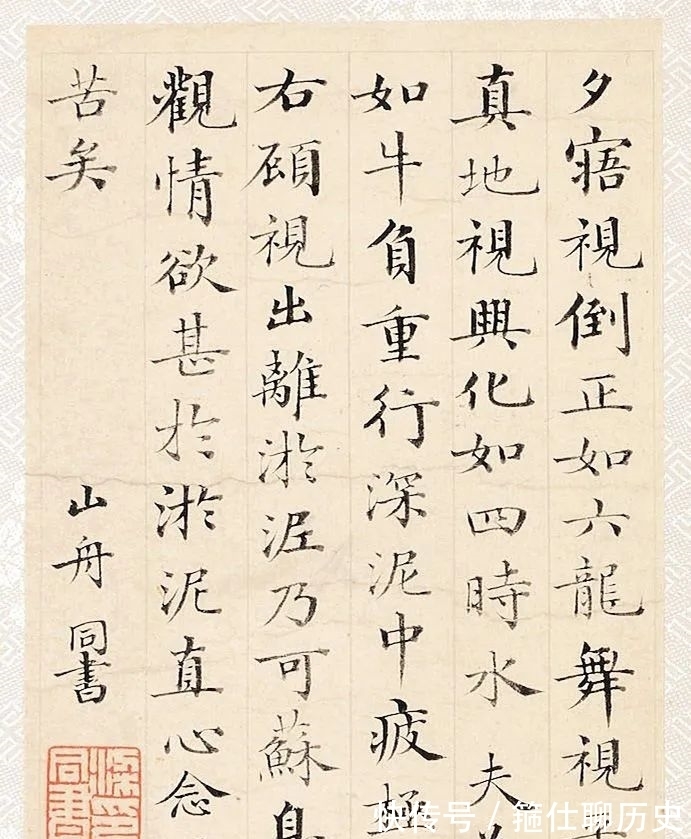 夕寤視倒正如六龍舞視
真地視興化如四時水夫
如牛負重行深泥中疲極
右顧視出離淤泥乃可蘇息
觀情欲甚於淤泥直心念
苦矣
山舟同書
梁同書印
快传号/箍仕聊历史